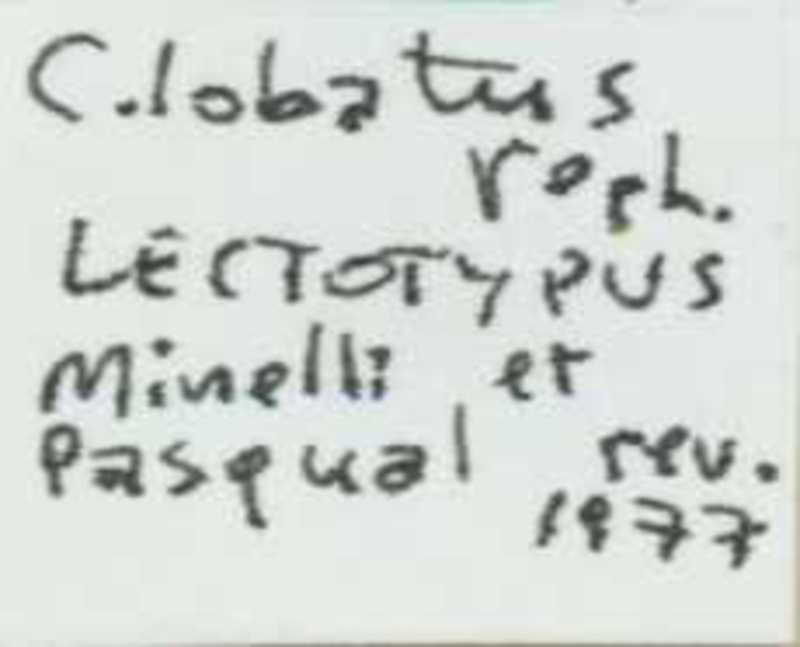 C. lobatus
roph.
LECTOTYPUS
Minelli et
Pasqual rev.
1977